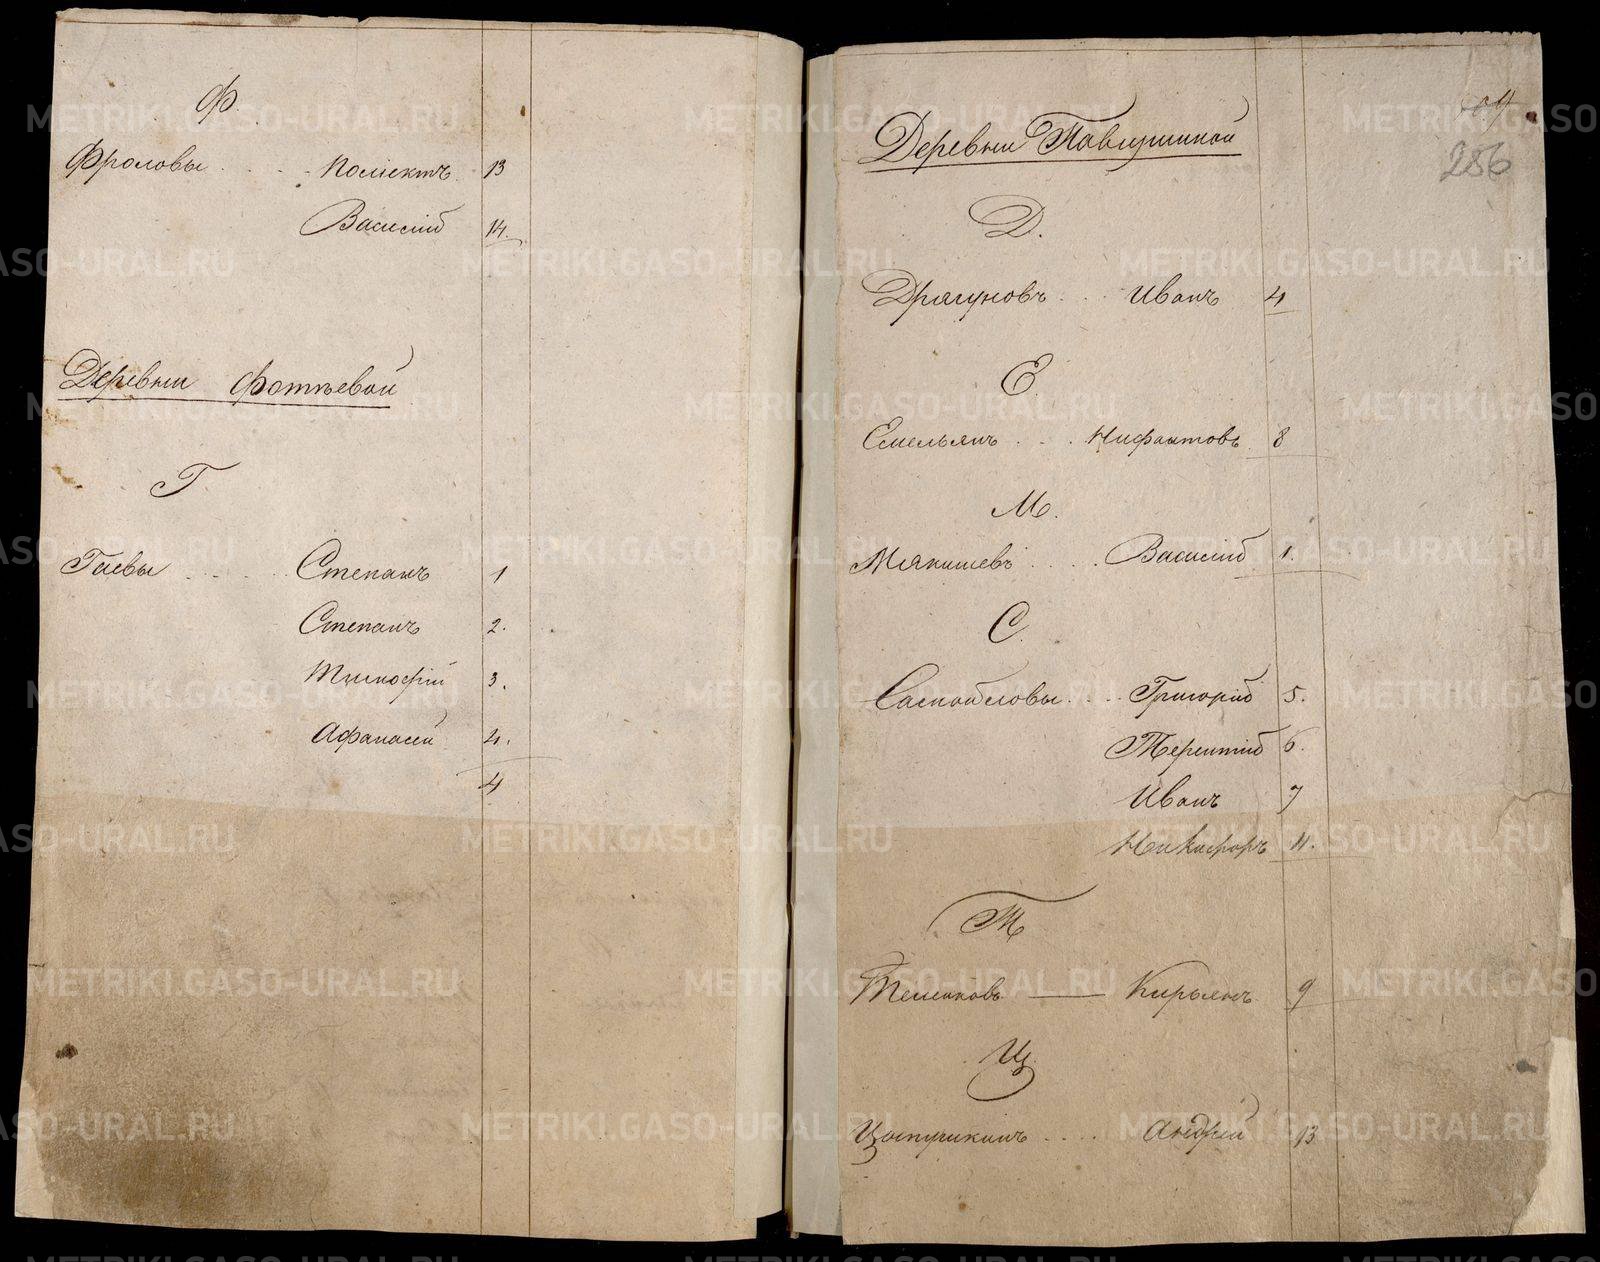 Ф.
Фроловы . . . . Полiектъ. 13
Василiй 14.
Деревни Фотѣевой
Г
Гаевы . . . . Степанъ 1
Степанъ 2.
Тимофiй 3.
Афанасiй 4.
4
286
Деревни Павлушиной
Д.
Драгуновъ . . . Иванъ 4
Е.
Емельянъ . . . Нифантовъ 8
М.
Мякишевъ . . . . Василiй 1.
С.
Григорiй 5.
Терентiй 6.
Иванъ 7
Никифоръ 11.
Т
Кирьянъ 9
Ц.
Андрей 13
METRIKI.GASO-URAL.RU